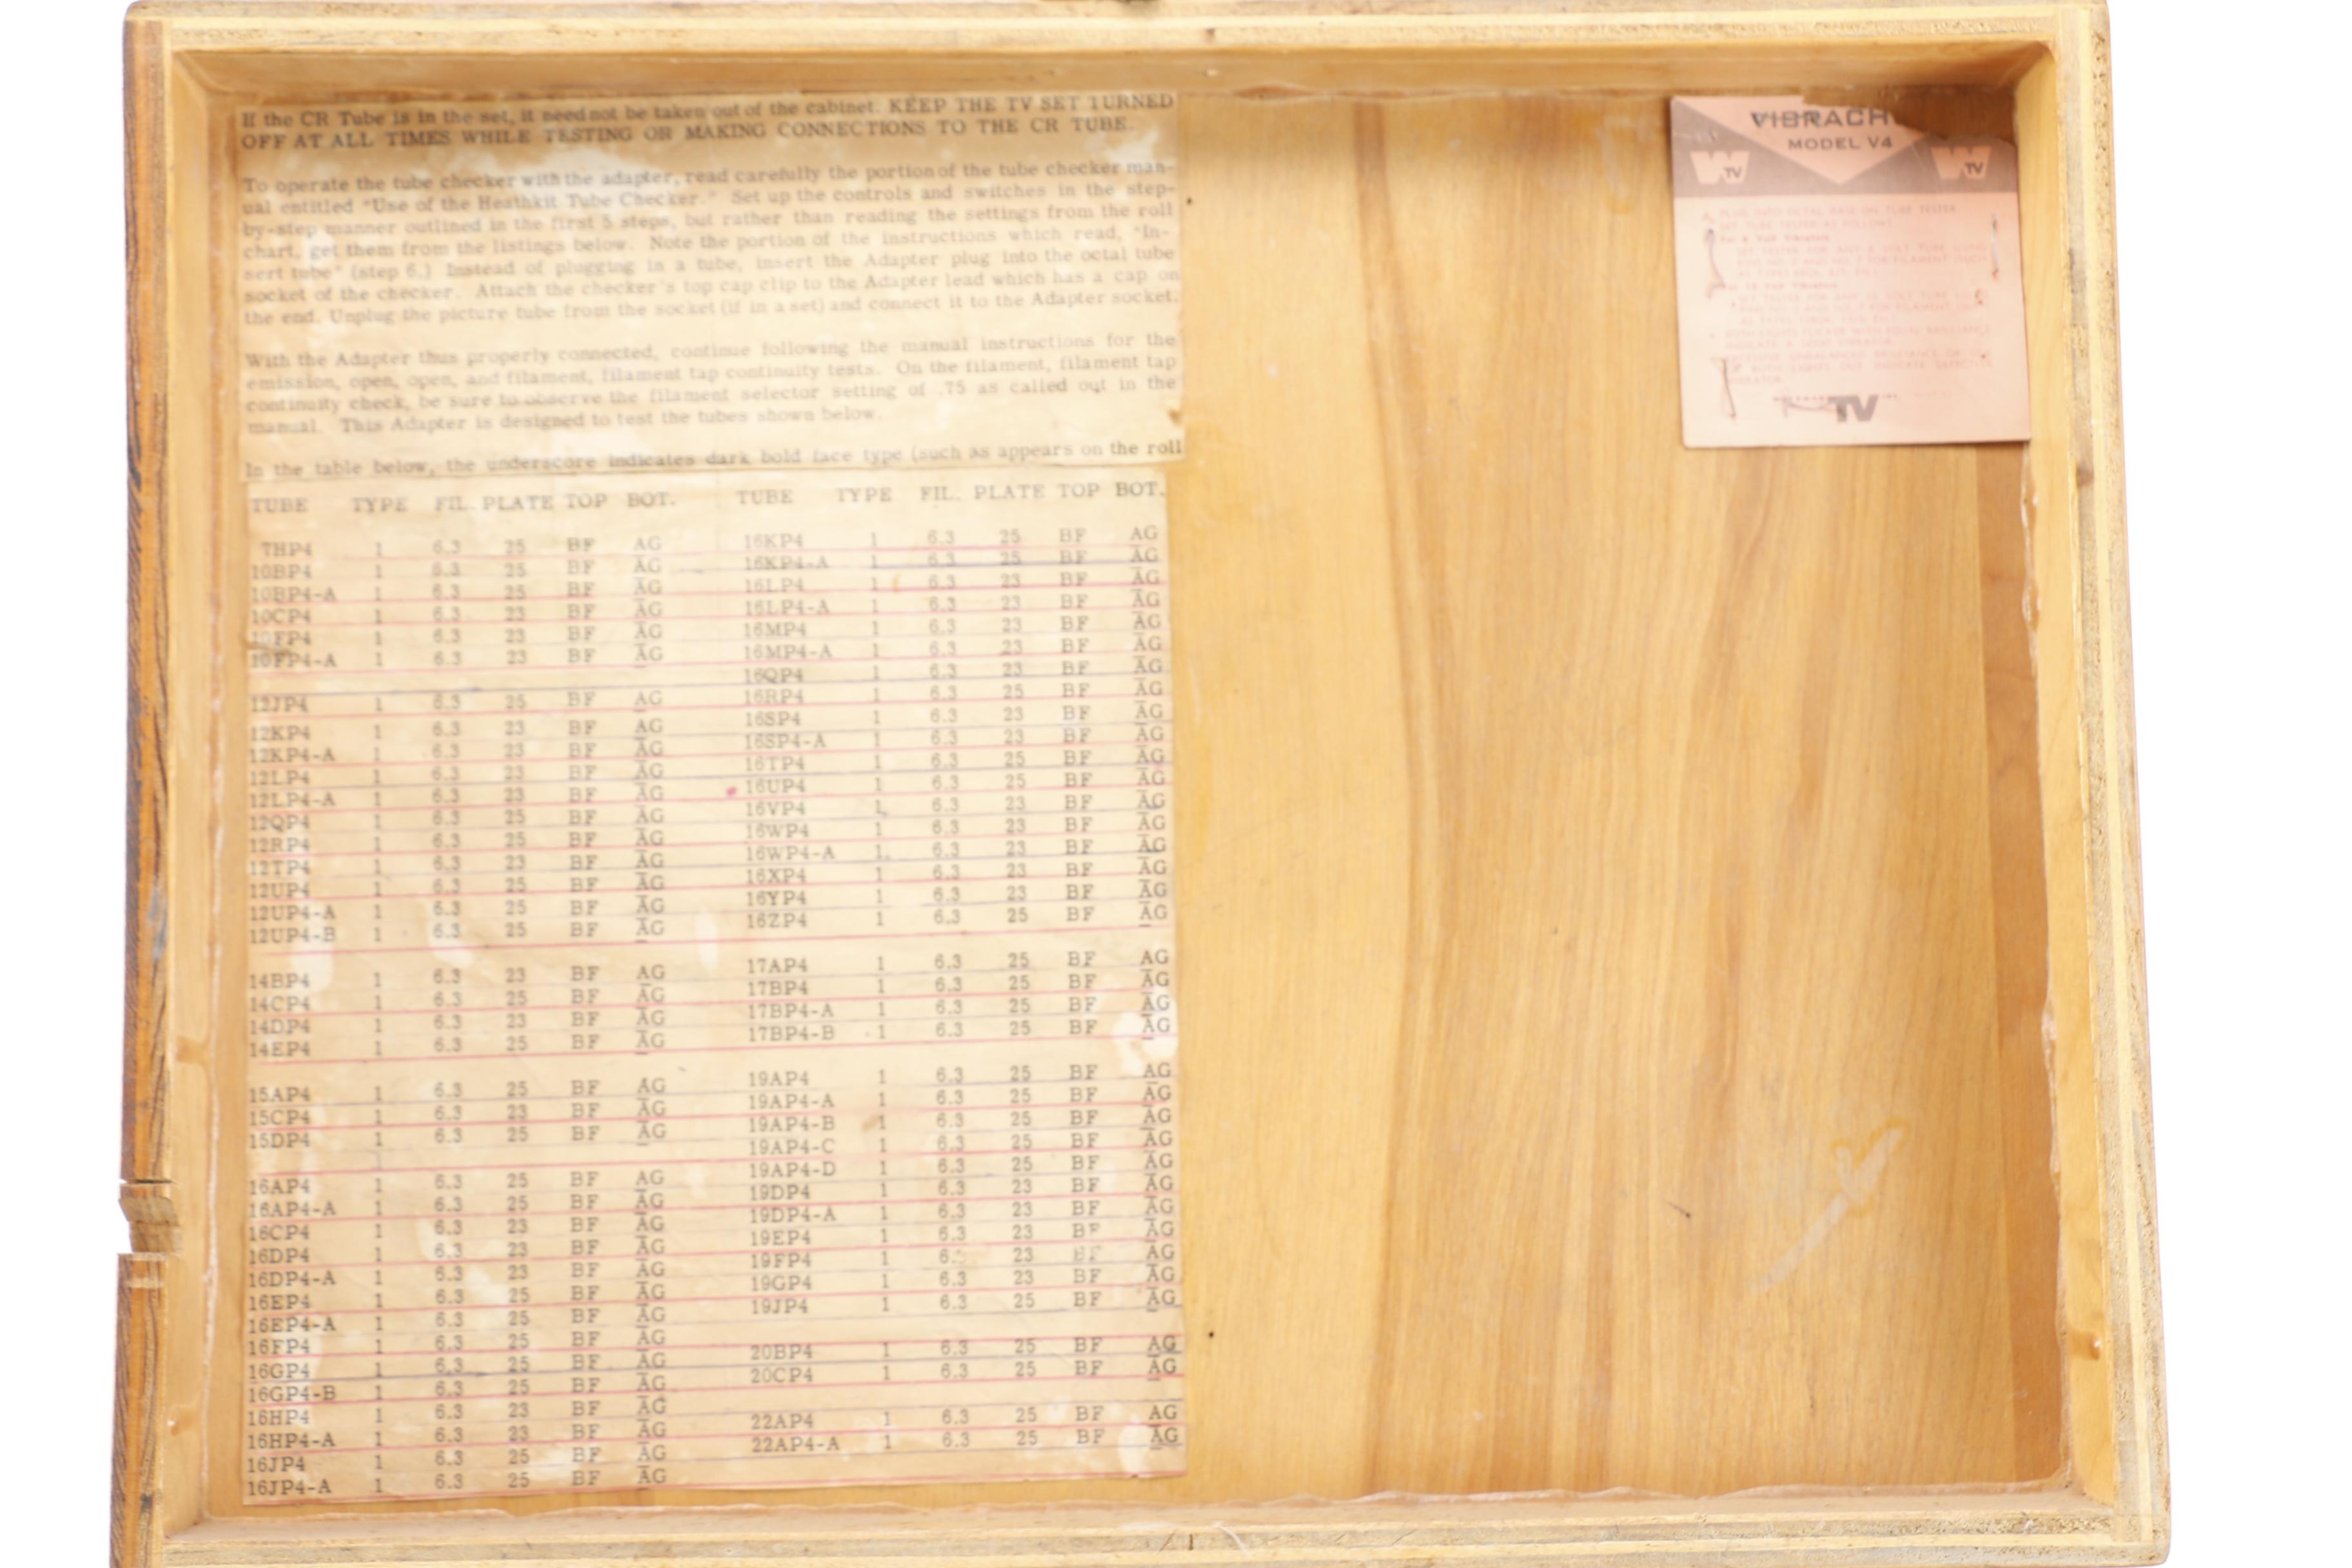 If the CR Tube is in the set, it need not be taken out of the cabinet. KEEP THE TV SET TURNED
OFF AT ALL TIMES WHILE TESTING OR MAKING CONNECTIONS TO THE CR TUBE.
To operate the tube checker with the adapter, read carefully the portion of the tube checker man-
ual entitled "Use of the Heathkit Tube Checker." Set up the controls and switches in the step-
by-step manner outlined in the first 5 steps, but rather than reading the settings from the roll
chart, get them from the listings below. Note the portion of the instructions which read, "In-
sert tube" (step 6.) Instead of plugging in a tube, insert the Adapter plug into the octal tube
socket of the checker. Attach the checker's top cap clip to the Adapter lead which has a cap on
the end. Unplug the picture tube from the socket (if in a set) and connect it to the Adapter socket.
With the Adapter thus properly connected, continue following the manual instructions for the
emission, open, open, and filament, filament tap continuity tests. On the filament, filament tap
continuity check, be sure to observe the filament selector setting of .75 as called out in the
manual. This Adapter is designed to test the tubes shown below.
In the table below, the underscore indicates dark bold face type (such as appears on the roll
TUBE TYPE FIL. PLATE TOP BOT.
7HP4 1 6.3 25 BF AG
10BP4 1 6.3 25 BF AG
10BP4-A 1 6.3 25 BF AG
10CP4 1 6.3 23 BF AG
10FP4 1 6.3 23 BF AG
10FP4-A 1 6.3 23 BF AG
12JP4 1 6.3 25 BF AG
12KP4 1 6.3 23 BF AG
12KP4-A 1 6.3 23 BF AG
12LP4 1 6.3 23 BF AG
12LP4-A 1 6.3 23 BF AG
12QP4 1 6.3 25 BF AG
12RP4 1 6.3 25 BF AG
12TP4 1 6.3 23 BF AG
12UP4 1 6.3 25 BF AG
12UP4-A 1 6.3 25 BF AG
12UP4-B 1 6.3 25 BF AG
14BP4 1 6.3 23 BF AG
14CP4 1 6.3 25 BF AG
14DP4 1 6.3 23 BF AG
14EP4 1 6.3 25 BF AG
15AP4 1 6.3 25 BF AG
15CP4 1 6.3 23 BF AG
15DP4 1 6.3 25 BF AG
16AP4 1 6.3 25 BF AG
16AP4-A 1 6.3 25 BF AG
16CP4 1 6.3 23 BF AG
16DP4 1 6.3 23 BF AG
16DP4-A 1 6.3 23 BF AG
16EP4 1 6.3 25 BF AG
16EP4-A 1 6.3 25 BF AG
16FP4 1 6.3 25 BF AG
16GP4 1 6.3 25 BF AG
16GP4-B 1 6.3 25 BF AG
16HP4 1 6.3 23 BF AG
16HP4-A 1 6.3 23 BF AG
16JP4 1 6.3 25 BF AG
16JP4-A 1 6.3 25 BF AG
TUBE TYPE FIL. PLATE TOP BOT.
16KP4 1 6.3 25 BF AG
16KP4-A 1 6.3 25 BF AG
16LP4 1 6.3 23 BF AG
16LP4-A 1 6.3 23 BF AG
16MP4 1 6.3 23 BF AG
16MP4-A 1 6.3 23 BF AG
16QP4 1 6.3 23 BF AG
16RP4 1 6.3 25 BF AG
16SP4 1 6.3 23 BF AG
16SP4-A 1 6.3 23 BF AG
16TP4 1 6.3 25 BF AG
16UP4 1 6.3 25 BF AG
16VP4 1 6.3 23 BF AG
16WP4 1 6.3 23 BF AG
16WP4-A 1 6.3 23 BF AG
16XP4 1 6.3 23 BF AG
16YP4 1 6.3 23 BF AG
16ZP4 1 6.3 25 BF AG
17AP4 1 6.3 25 BF AG
17BP4 1 6.3 25 BF AG
17BP4-A 1 6.3 25 BF AG
17BP4-B 1 6.3 25 BF AG
19AP4 1 6.3 25 BF AG
19AP4-A 1 6.3 25 BF AG
19AP4-B 1 6.3 25 BF AG
19AP4-C 1 6.3 25 BF AG
19AP4-D 1 6.3 25 BF AG
19DP4 1 6.3 23 BF AG
19DP4-A 1 6.3 23 BF AG
19EP4 1 6.3 23 BF AG
19FP4 1 6. 23 BF AG
19GP4 1 6.3 23 BF AG
19JP4 1 6.3 25 BF AG
20BP4 1 6.3 25 BF AG
20CP4 1 6.3 25 BF AG
22AP4 1 6.3 25 BF AG
22AP4-A 1 6.3 25 BF AG
VIBRACH
MODEL V4
W TV
W TV
PLUG INTO OCTAL BASE ON TUBE TESTER
SET TUBE TESTER AS FOLLOWS
TV